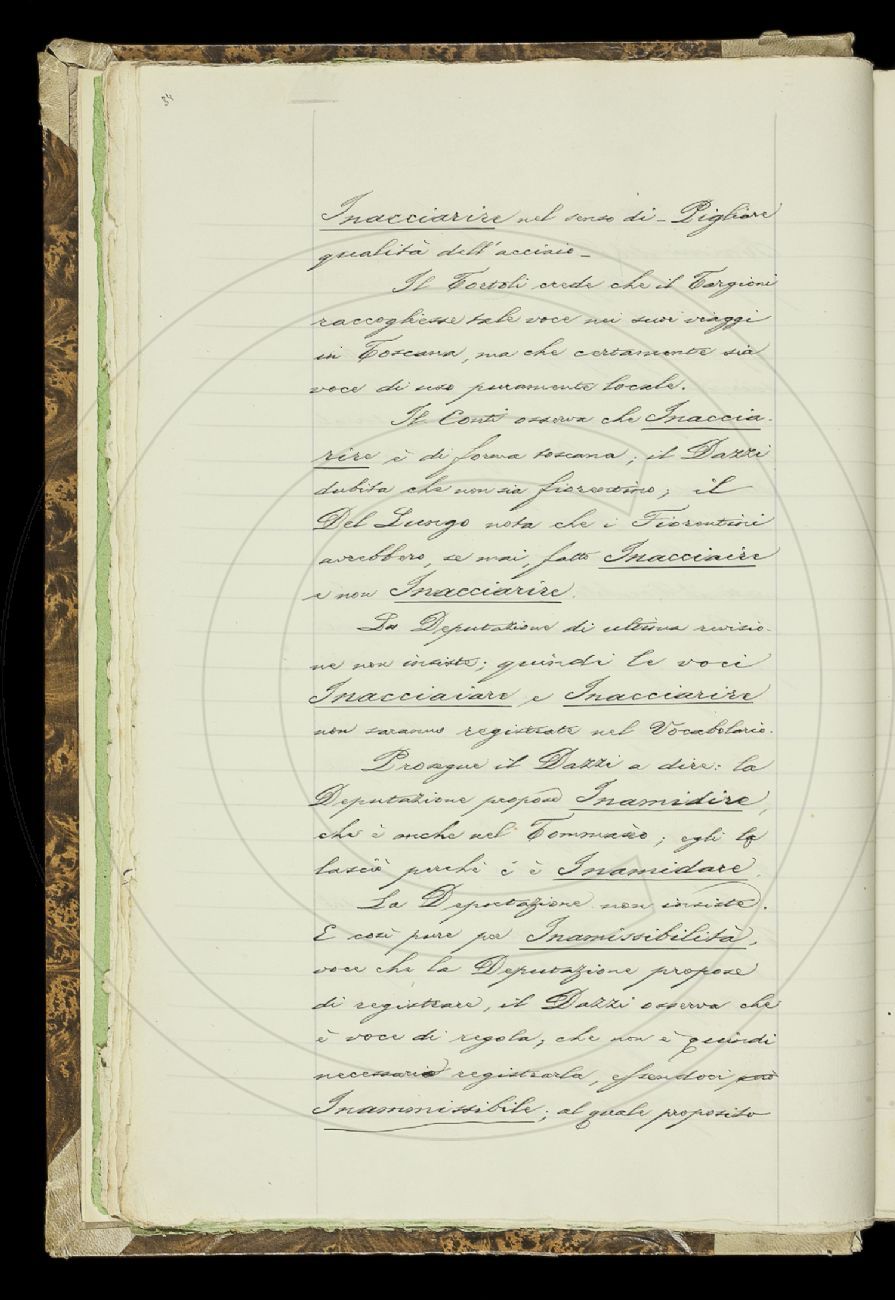 34
Inacciarire nel senso di - Pigliare
qualità dell'acciaio -
Il Tortoli crede che il Targioni
raccogliesse tale voce nei suoi viaggi
in Toscana, ma che certamente sia
voce di uso puramente locale.
Il Conti osserva che Inaccia-
rire è di forma toscana; il Dazzi
dubita che non sia fiorentino; il
Del Lungo nota che i Fiorentini
avrebbero, se mai, fatto Inacciaire
e non Inacciarire.
La Deputazione di ultima revisio-
ne non insiste; quindi le voci
Inacciaiare e Inacciarire
non saranno registrate nel Vocabolario.
Prosegue il Dazzi a dire: la
Deputazione propose Inamidire,
che è anche nel Tommasèo; egli lo
lasciò perchè c'è Inamidare.
La Deputazione non insiste.
E così pure per Inamissibilità,
voce che la Deputazione propose
di registrare, il Dazzi osserva che
è voce di regola; che non è quindi
necessario registrarla, essendoci
Inammissibile; al quale proposito